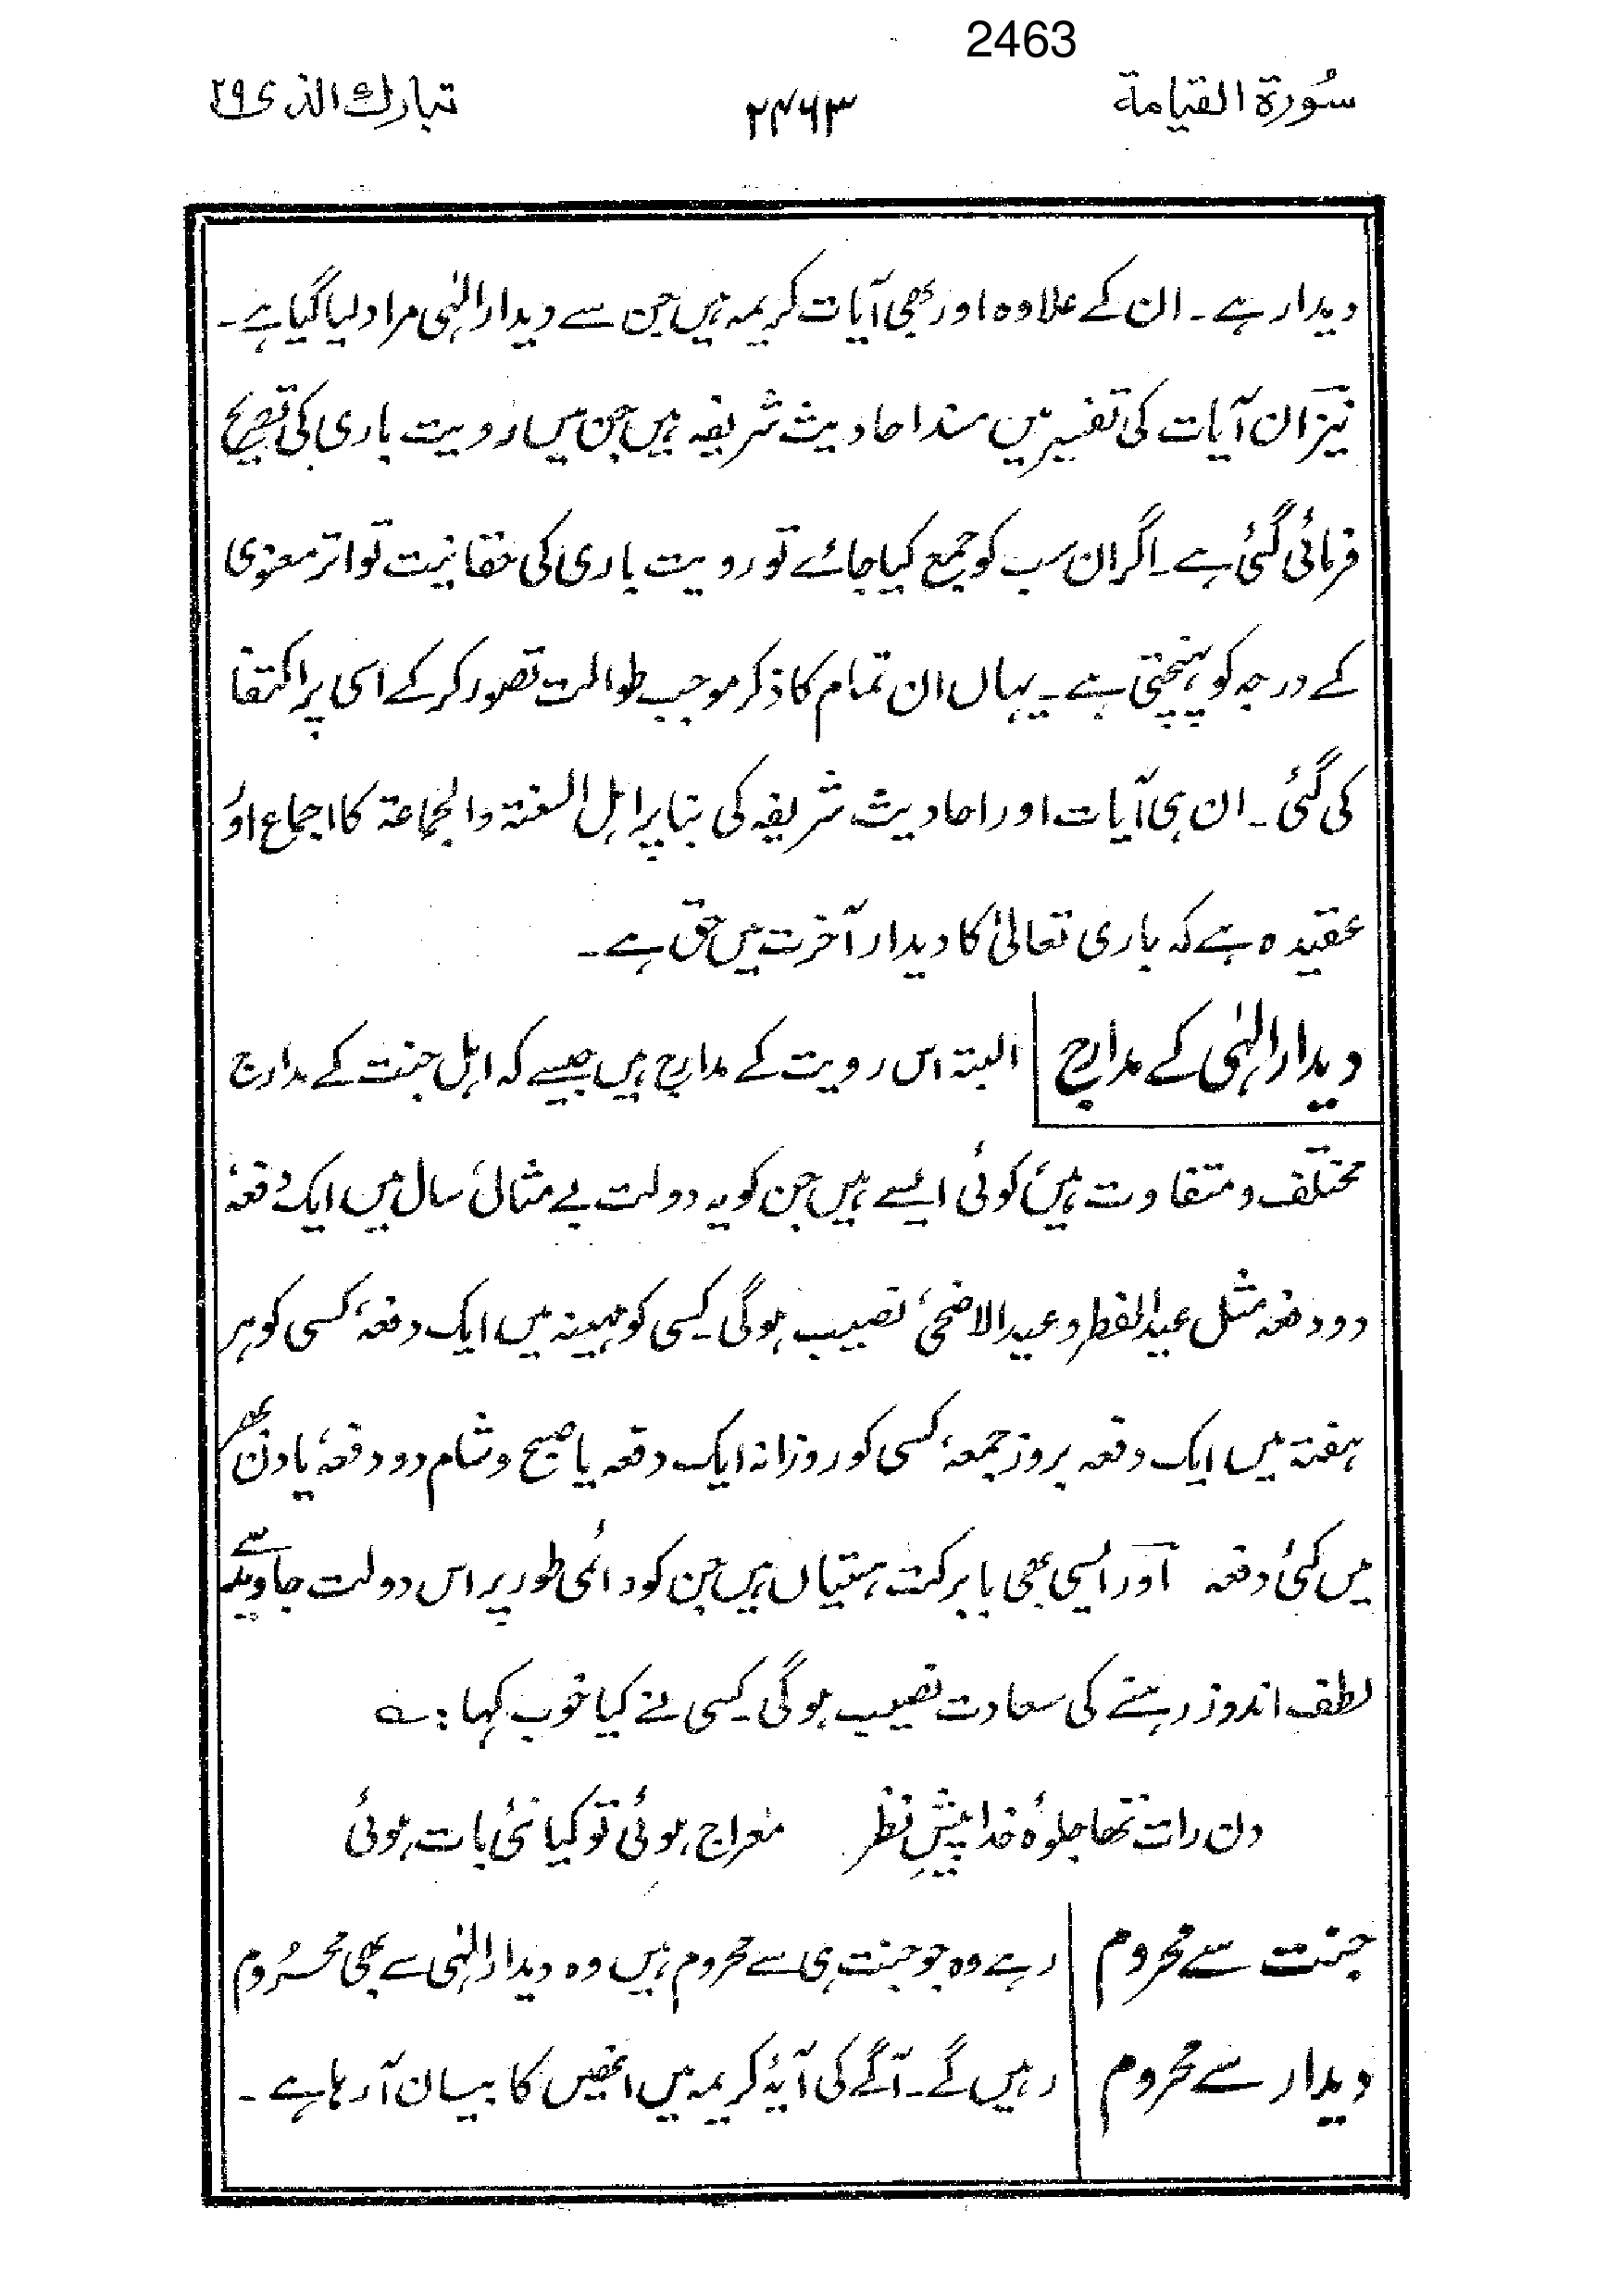 2463
سُورة القيامة ۲۴۶۳ تبارك الذى ۲۹
دیدار ہے ۔ ان کے علاوہ اور بھی آیات کریمہ ہیں جن سے دیدار الٰہی مراد لیا گیا ہے ۔
نیز ان آیات کی تفسیر میں مسند احادیث شریفہ ہیں جن میں رویت باری کی تصریح
فرمائی گئی ہے ۔ اگر ان سب کو جمع کیا جائے تو رویت باری کی حقانیت تواتر معنوی
کے درجہ کو پہنچتی ہے ۔ یہاں ان تمام کا ذکر موجب طوالت تصور کر کے اسی پر اکتفا
کی گئی ۔ ان ہی آیات اور احادیث شریفہ کی بنا پر اہل السنۃ والجماعۃ کا اجماع اور
عقیدہ ہے کہ باری تعالیٰ کا دیدار آخرت میں حق ہے ۔
دیدار الٰہی کے مدارج البتہ اس رویت کے مدارج ہیں جیسے کہ اہل جنت کے مدارج
مختلف و متفاوت ہیں، کوئی ایسے ہیں جن کو یہ دولت بے مثال، سال میں ایک دفعہ،
دو دفعہ مثل عید الفطر و عید الاضحیٰ، نصیب ہوگی ۔ کسی کو مہینہ میں ایک دفعہ، کسی کو ہر
ہفتہ میں ایک دفعہ بروز جمعہ، کسی کو روزانہ ایک دفعہ یا صبح و شام دو دفعہ، یا دن بھر
میں کئی دفعہ اور ایسی بھی بابرکت ہستیاں ہیں جن کو دائمی طور پر اس دولت جاوید سے
لطف اندوز رہنے کی سعادت نصیب ہوگی ۔ کسی نے کیا خوب کہا : ؎
دن رات تھا جلوۂ خدا پیشِ نظر معراج ہوئی تو کیا نئی بات ہوئی
جنت سے محروم رہے وہ جو جنت ہی سے محروم ہیں وہ دیدار الٰہی سے بھی محسُروم
دیدار سے محروم رہیں گے ۔ آگے کی آیۂ کریمہ میں انھیں کا بیسان آ رہا ہے ۔